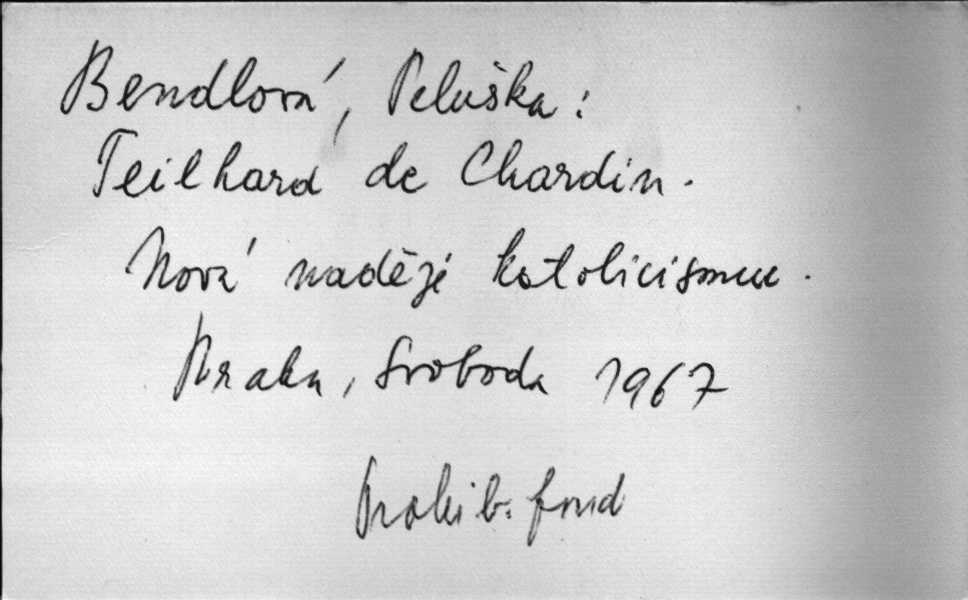 Bendlová, Peluška:
Teilhard de Chardin.
Nová naděje katolicismu.
Praha, Svoboda 1967
Prohib. fond